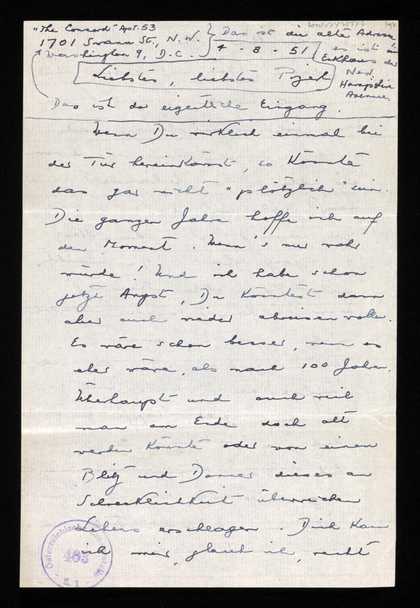 "The Concord" Apt. 53
1701 Swann St., N.W.
Washington 9, D.C.
4 - 8 - 51
Das ist die alte Adresse
es ist im
Eckhaus der
New
Hampshire
Avenue
Liebster, liebster
Das ist der eigentliche Eingang.
Wenn Du wirklich einmal bei
der Tür hereinkämst, so könnte
das gar nicht "plötzlich" sein.
Die ganzen Jahre hoffe ich auf
den Moment. Wenn's nur wahr
würde! Und ich habe schon
jetzt Angst, Du könntest dann
aber auch wieder abreisen wollen.
Es wäre schon besser, wenn es
eher wäre, als nach 100 Jahren,
überhaupt und auch weil
man am Ende doch alt
werden könnte oder von einem
Blitz und Donner dieses an
Schrecklichkeit überreichen
Lebens erschlagen. Dich kann
ich mir, gleich ich, nicht
483